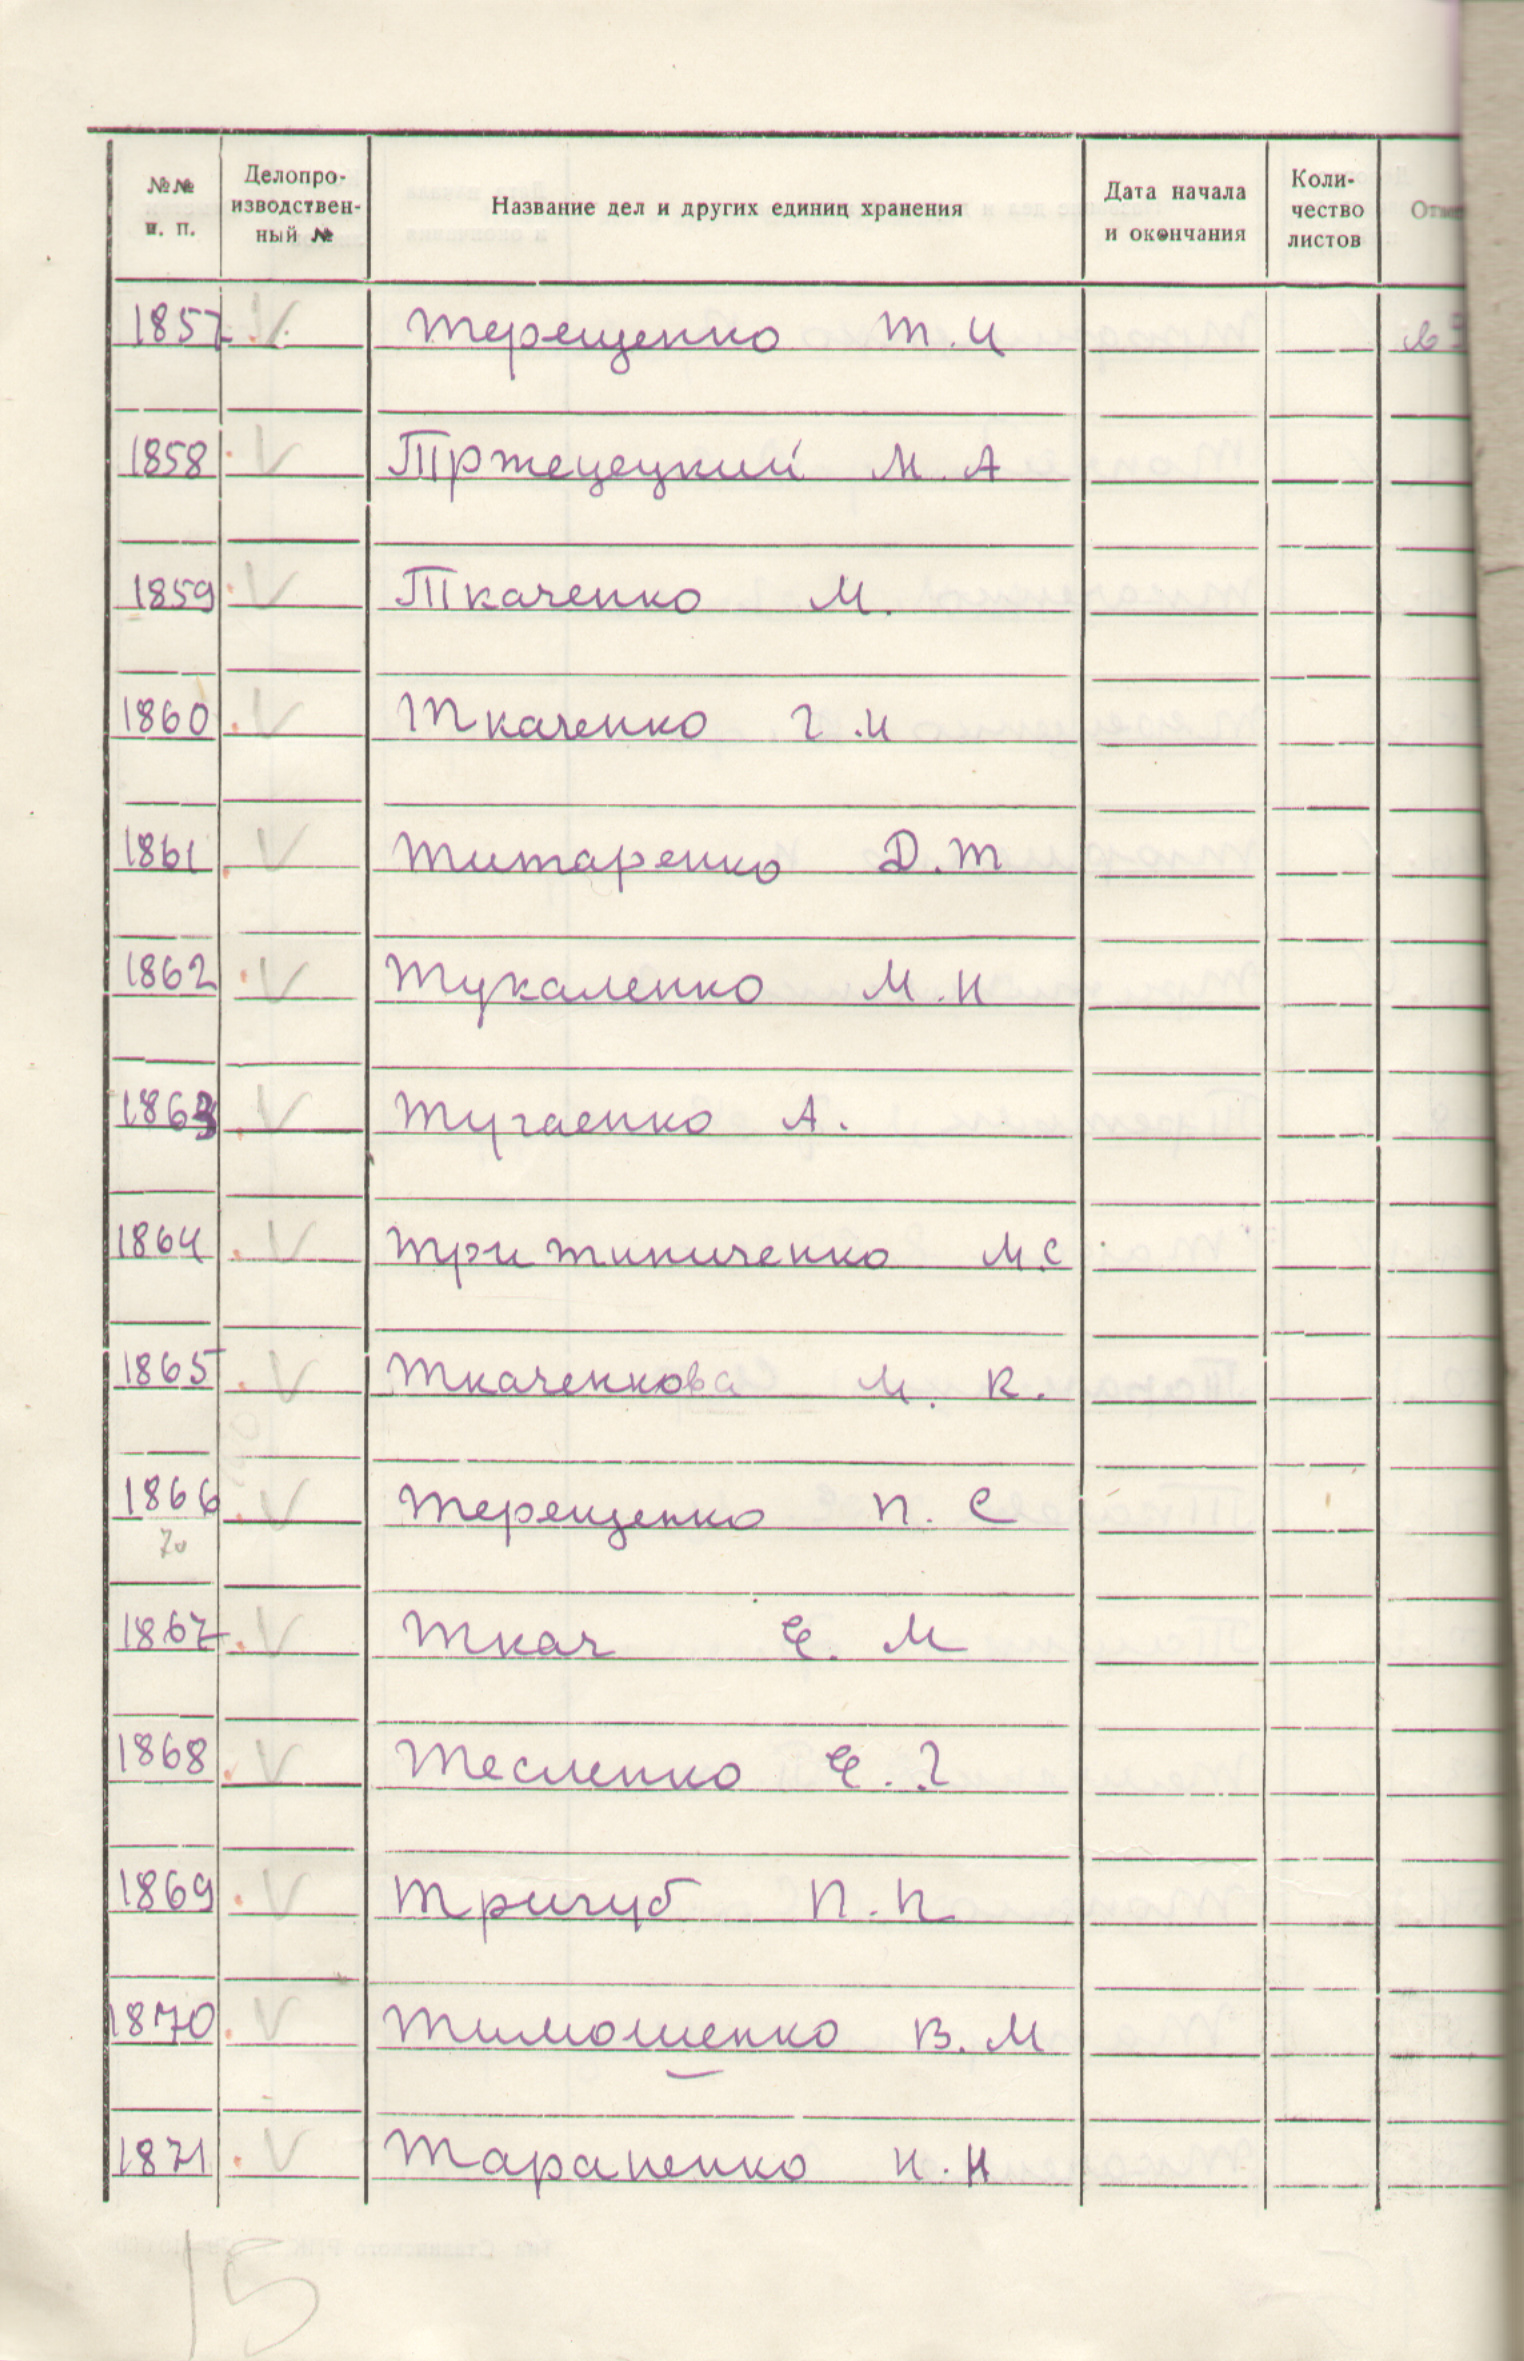 №№ п. п. Делопроизводственный № Название дел и других единиц хранения Дата начала и окончания Количество листов
1857 Терещенко Т. И
1858 Тржецецкий М. А
1859 Ткаченко М.
1860 Ткаченко Г. И
1861 Титаренко Д. Т
1862 Тукаленко М. И
1863 Тугаенко А.
1864 М. С
1865 Ткаченкова М. К.
1866 Терещенко П. С
70
1867 Ткач Е. М
1868 Тесленко Е. Г
1869 Тригуб П. П
1870 Тимошенко В. М
1871 Тараненко И. Н
15